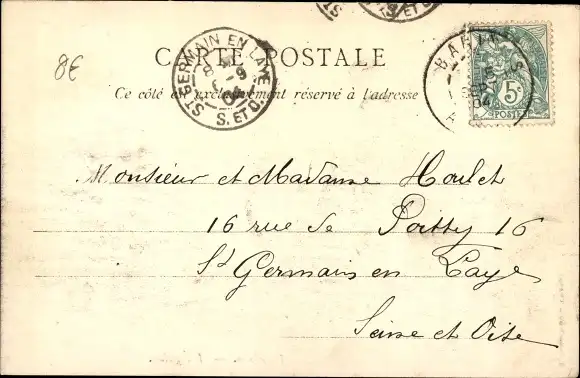 8€
CARTE POSTALE
Ce côté est exclusivement réservé à l'adresse
ST GERMAIN EN LAYE
8
9
04
S. ET O.
BAR
S
SEP
04
5c
POSTES
ET O.
Monsieur et Madame Houlet
16 rue de Poissy 16
St Germain en Laye
Seine et Oise